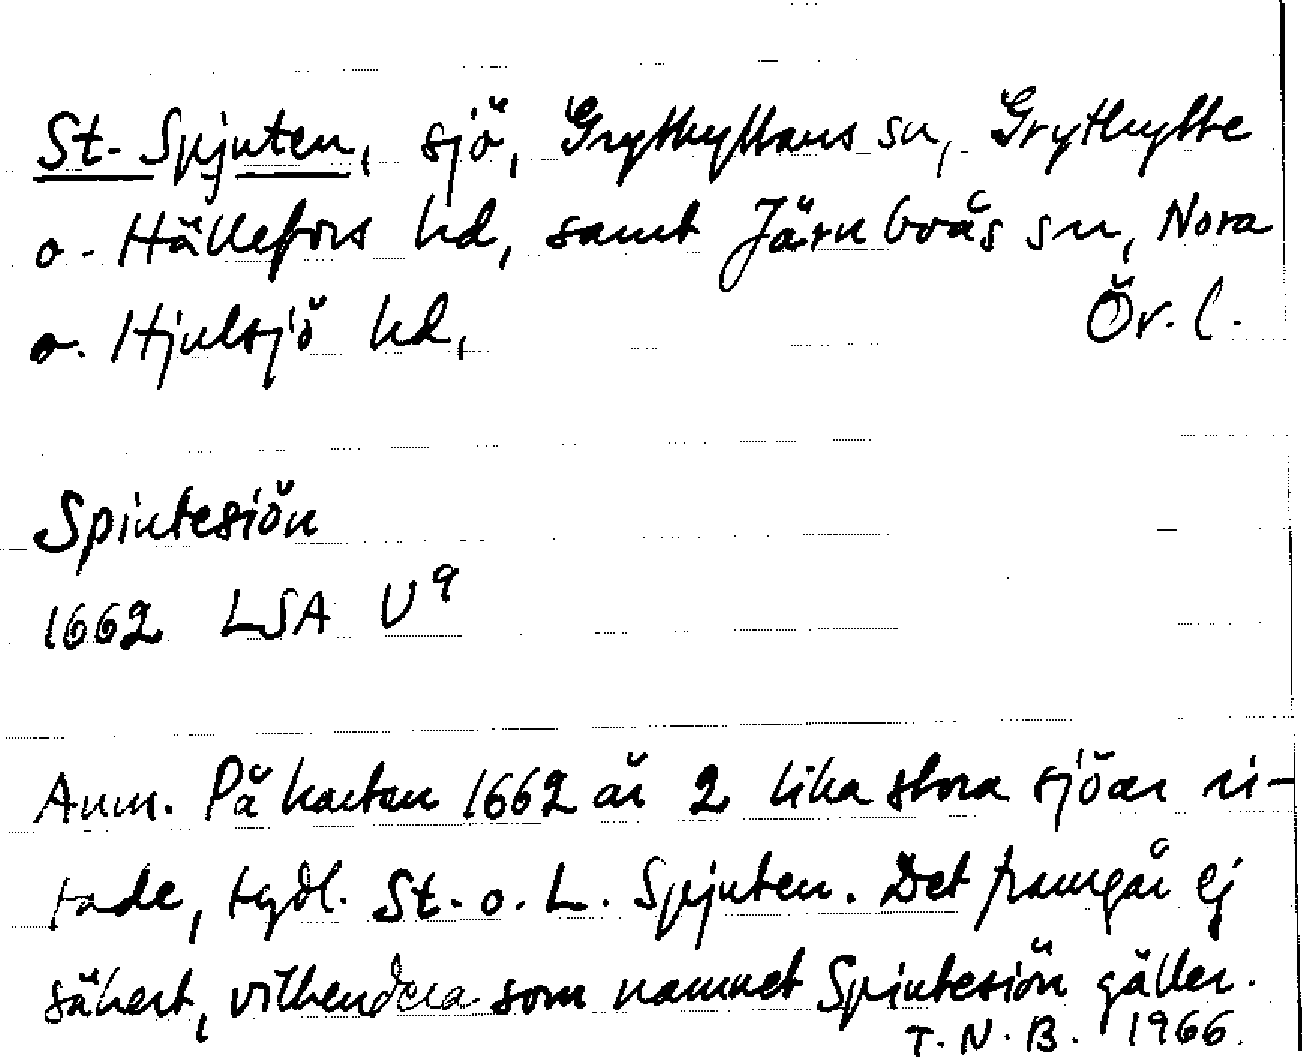 St. Spjuten, sjö, Grythyttans sn, Grythytte
o. Hällefors hd, samt Järnboås sn, Nora
o. Hjulsjö hd,
Ör. l.
Spiutesiön
1662 LSA U9
Anm. På kartan 1662 är 2 lika stora sjöar ri-
tade, tydl. St. o. L. Spjuten. Det framgår ej
säkert, vilkendera som namnet Spiutesiön gäller.
T.N.B. 1966.